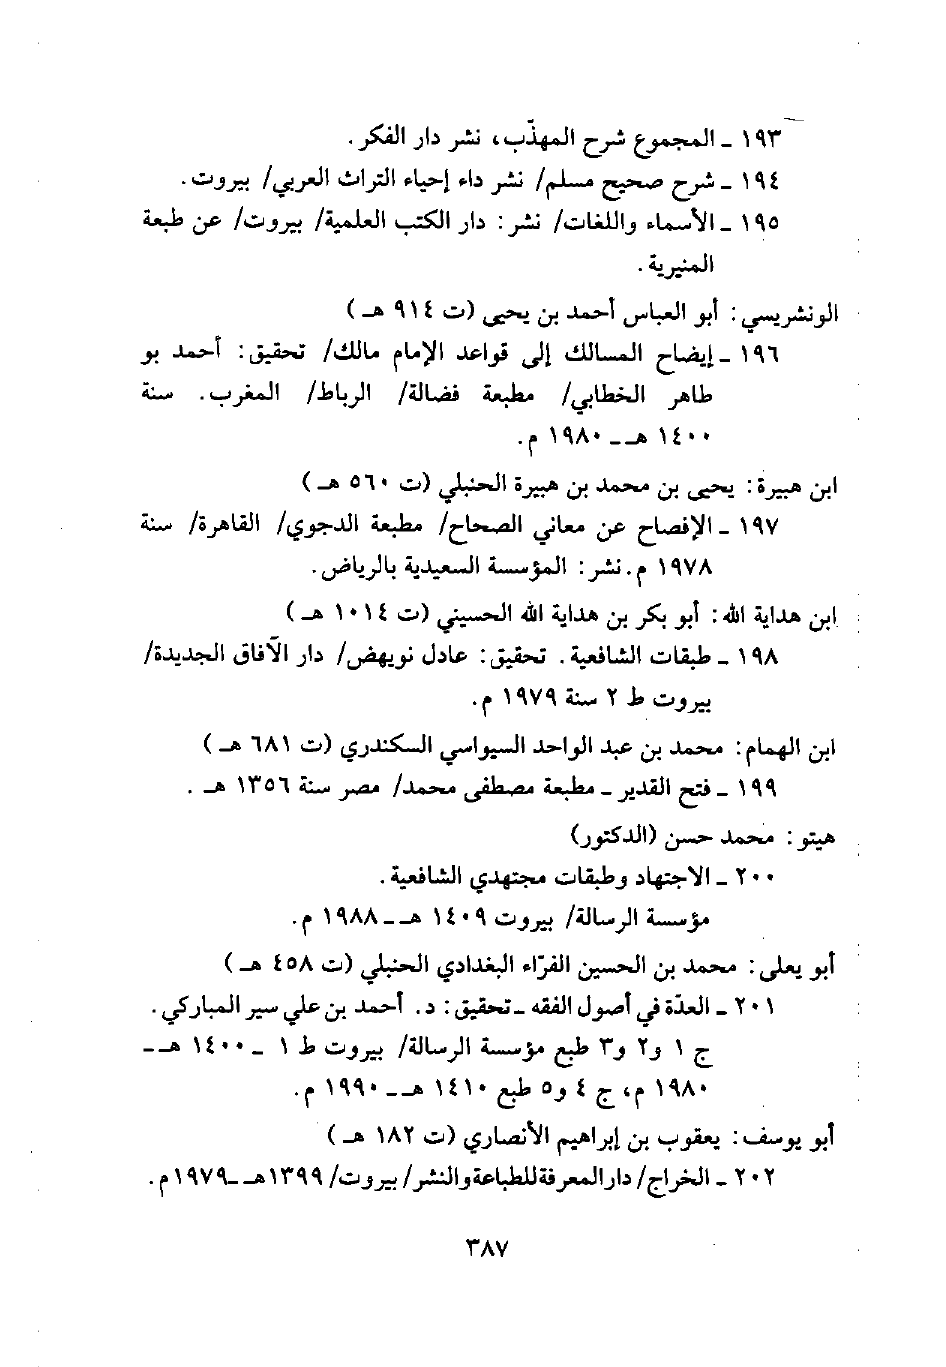 ١٩٣ ـ المجموع شرح المهذّب، نشر دار الفكر.
١٩٤ ـ شرح صحيح مسلم/ نشر داء إحياء التراث العربي/ بيروت.
١٩٥ ـ الأسماء واللغات/ نشر: دار الكتب العلمية/ بيروت/ عن طبعة
المنيرية.
الونشريسي: أبو العباس أحمد بن يحيى (ت ٩١٤ هـ)
١٩٦ ـ إيضاح المسالك إلى قواعد الإمام مالك/ تحقيق: أحمد بو
طاهر الخطابي/ مطبعة فضالة/ الرباط/ المغرب. سنة
١٤٠٠ هـ ـ ١٩٨٠ م.
ابن هبيرة: يحيى بن محمد بن هبيرة الحنبلي (ت ٥٦٠ هـ)
١٩٧ ـ الإفصاح عن معاني الصحاح/ مطبعة الدجوي/ القاهرة/ سنة
١٩٧٨ م. نشر: المؤسسة السعيدية بالرياض.
ابن هداية الله: أبو بكر بن هداية الله الحسيني (ت ١٠١٤ هـ)
١٩٨ ـ طبقات الشافعية. تحقيق: عادل نويهض/ دار الآفاق الجديدة/
بيروت ط ٢ سنة ١٩٧٩ م.
ابن الهمام: محمد بن عبد الواحد السيواسي السكندري (ت ٦٨١ هـ)
١٩٩ ـ فتح القدير ـ مطبعة مصطفى محمد/ مصر سنة ١٣٥٦ هـ.
هيتو: محمد حسن (الدكتور)
٢٠٠ ـ الاجتهاد وطبقات مجتهدي الشافعية.
مؤسسة الرسالة/ بيروت ١٤٠٩ هـ ـ ١٩٨٨ م.
أبو يعلى: محمد بن الحسين الفرّاء البغدادي الحنبلي (ت ٤٥٨ هـ)
٢٠١ ـ العدّة في أصول الفقه ـ تحقيق: د. أحمد بن علي سير المباركي.
ج ١ و٢ و٣ طبع مؤسسة الرسالة/ بيروت ط ١ ـ ١٤٠٠ هـ ـ
١٩٨٠ م، ج ٤ و٥ طبع ١٤١٠ هـ ـ ١٩٩٠ م.
أبو يوسف: يعقوب بن إبراهيم الأنصاري (ت ١٨٢ هـ)
٢٠٢ ـ الخراج/ دار المعرفة للطباعة والنشر/ بيروت/ ١٣٩٩ هـ ـ ١٩٧٩ م.
٣٨٧